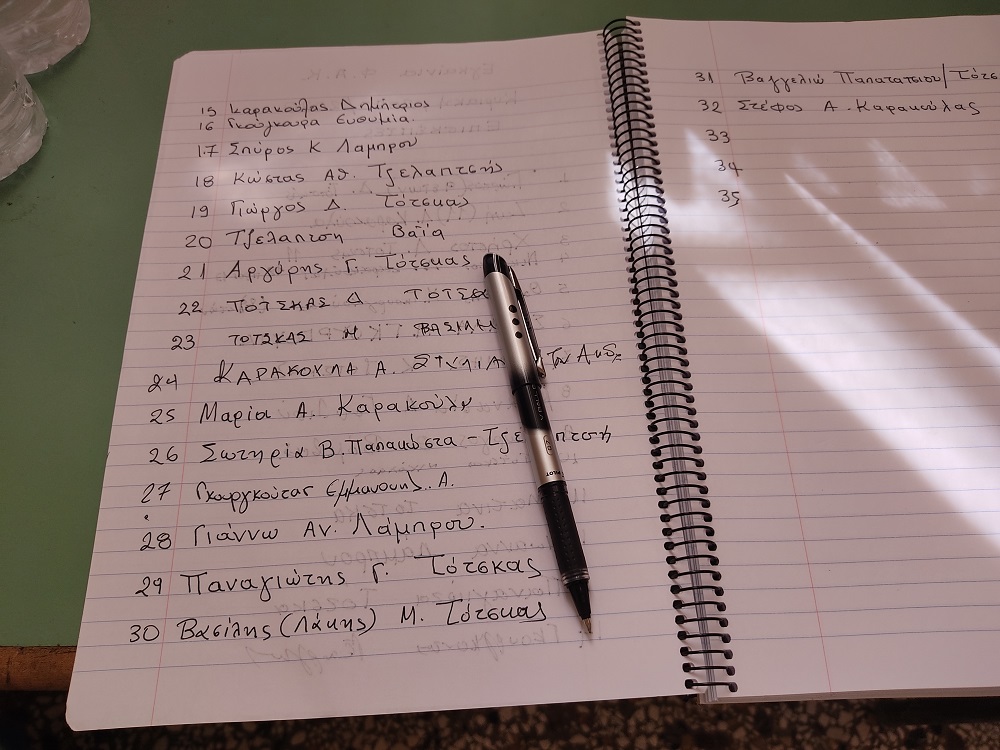 15 Καρακούλας Δημήτριος
16 Γκούγκουρα Ευθυμία.
17 Σπύρος Κ Λαμπρου
18 Κώστας Αθ. Τζελαπτσής
19 Γιώργος Δ. Τότσκας
20 Τζελαπτση Βαΐα
21 Αργύρης Γ. Τότσκας
22 ΤΟΤΣΚΑΣ Δ
23 ΤΟΤΣΚΑΣ Η. ΒΑΣΙΛΗ
24 ΚΑΡΑΚΟΥΛΑ Α. Του
25 Μαρία Α. Καρακούλη
26 Σωτηρία Β. Παπακώστα -
27 Γκουργκούτας Εμμανουήλ. Α.
28 Γιάννω Αν. Λάμπρου.
29 Παναγιώτης Γ. Τότσκας
30 Βασίλης (Λάκης) Μ. Τότσκας
PILOT
31 Βαγγελιώ Παπατατσιου/Τότσ
32 Στέφος Α. Καρακούλας
33
34
35